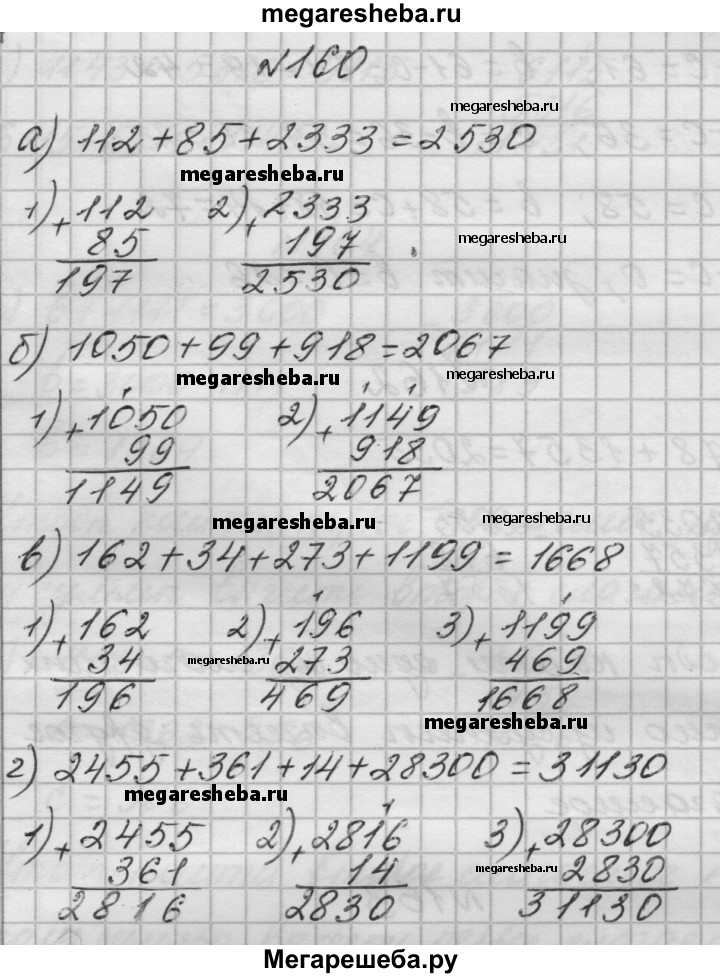 megaresheba.ru
№160
megaresheba.ru
а) 112+85+2333=2530
megaresheba.ru
1) +112 2) +2333
85 197
megaresheba.ru
197 2530
б) 1050+99+918=2067
megaresheba.ru megaresheba.ru
1) +1050 2) +1149
99 918
1149 2067
megaresheba.ru megaresheba.ru
в) 162+34+273+1199=1668
1) +162 2) +196 3) +1199
34 273 469
megaresheba.ru megaresheba.ru
196 469 1668
megaresheba.ru
г) 2455+361+14+28300=31130
megaresheba.ru
1) +2455 2) +2816 3) +28300
361 14 2830
megaresheba.ru
2816 2830 31130
Мегарешеба.ру